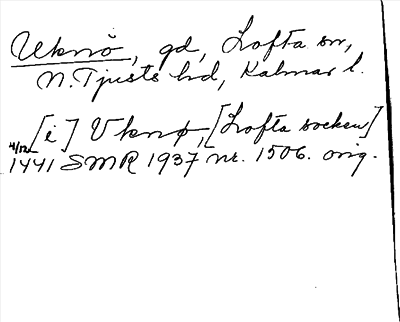 Uknö, gd, Lofta sn,
N. Tjusts hd, Kalmar l.
[i] Vknø, [Lofta socken]
4/12 1441 SMR 1937 nr. 1506. orig.